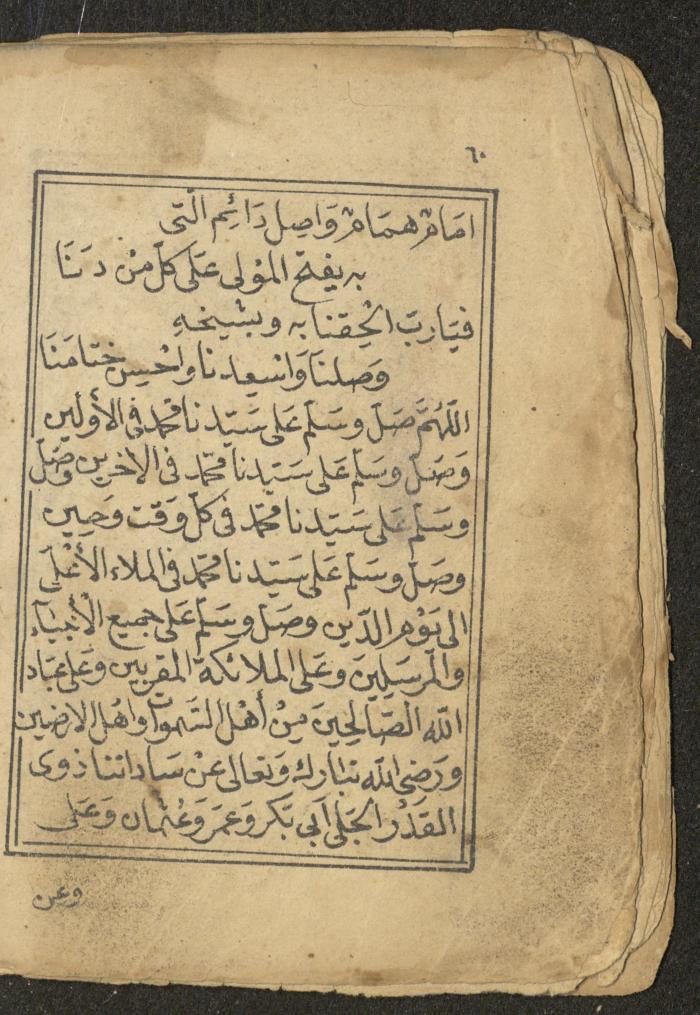 ٦٠
امَامٌ همَامٌ وَاصِل دَائِم الَّتى
به يفتح المَوْلى عَلَى كلّ مَنْ دَنَا
فيَارَبّ الْحِقنَا به وبشيخهِ
وَصلنَا وَاسعِدنا واحْسِن ختامَنَا
اللّهُمَّ صَلّ وسَلّم عَلى سَيّدنا محمّد فى الأوّلين
وَصَلّ وسَلّم عَلى سَيّدنا محمّد فى الاخرين وَصَلّ
وسَلّم عَلى سَيّدنا محمّد فى كلّ وَقت وَحِين
وصَلّ وسَلّم عَلى سَيّدنا محمّد فى الملاء الأعْلَى
الى يَوْم الدّين وصَلّ وسَلّم عَلى جميع الأنبيَاء
وَالمرسَلِين وعَلى الملائكة المقربين وَعَلى عبَاد
اللّه الصّالحِين مِنْ أهْل السَّموات واهْل الارضين
ورَضى اللّه تبَارك وَتعَالى عَنْ سَاداتنا ذوى
القَدْر الجَلى أبى بَكر وعمَر وَعُثمان وَعَلى
وعن